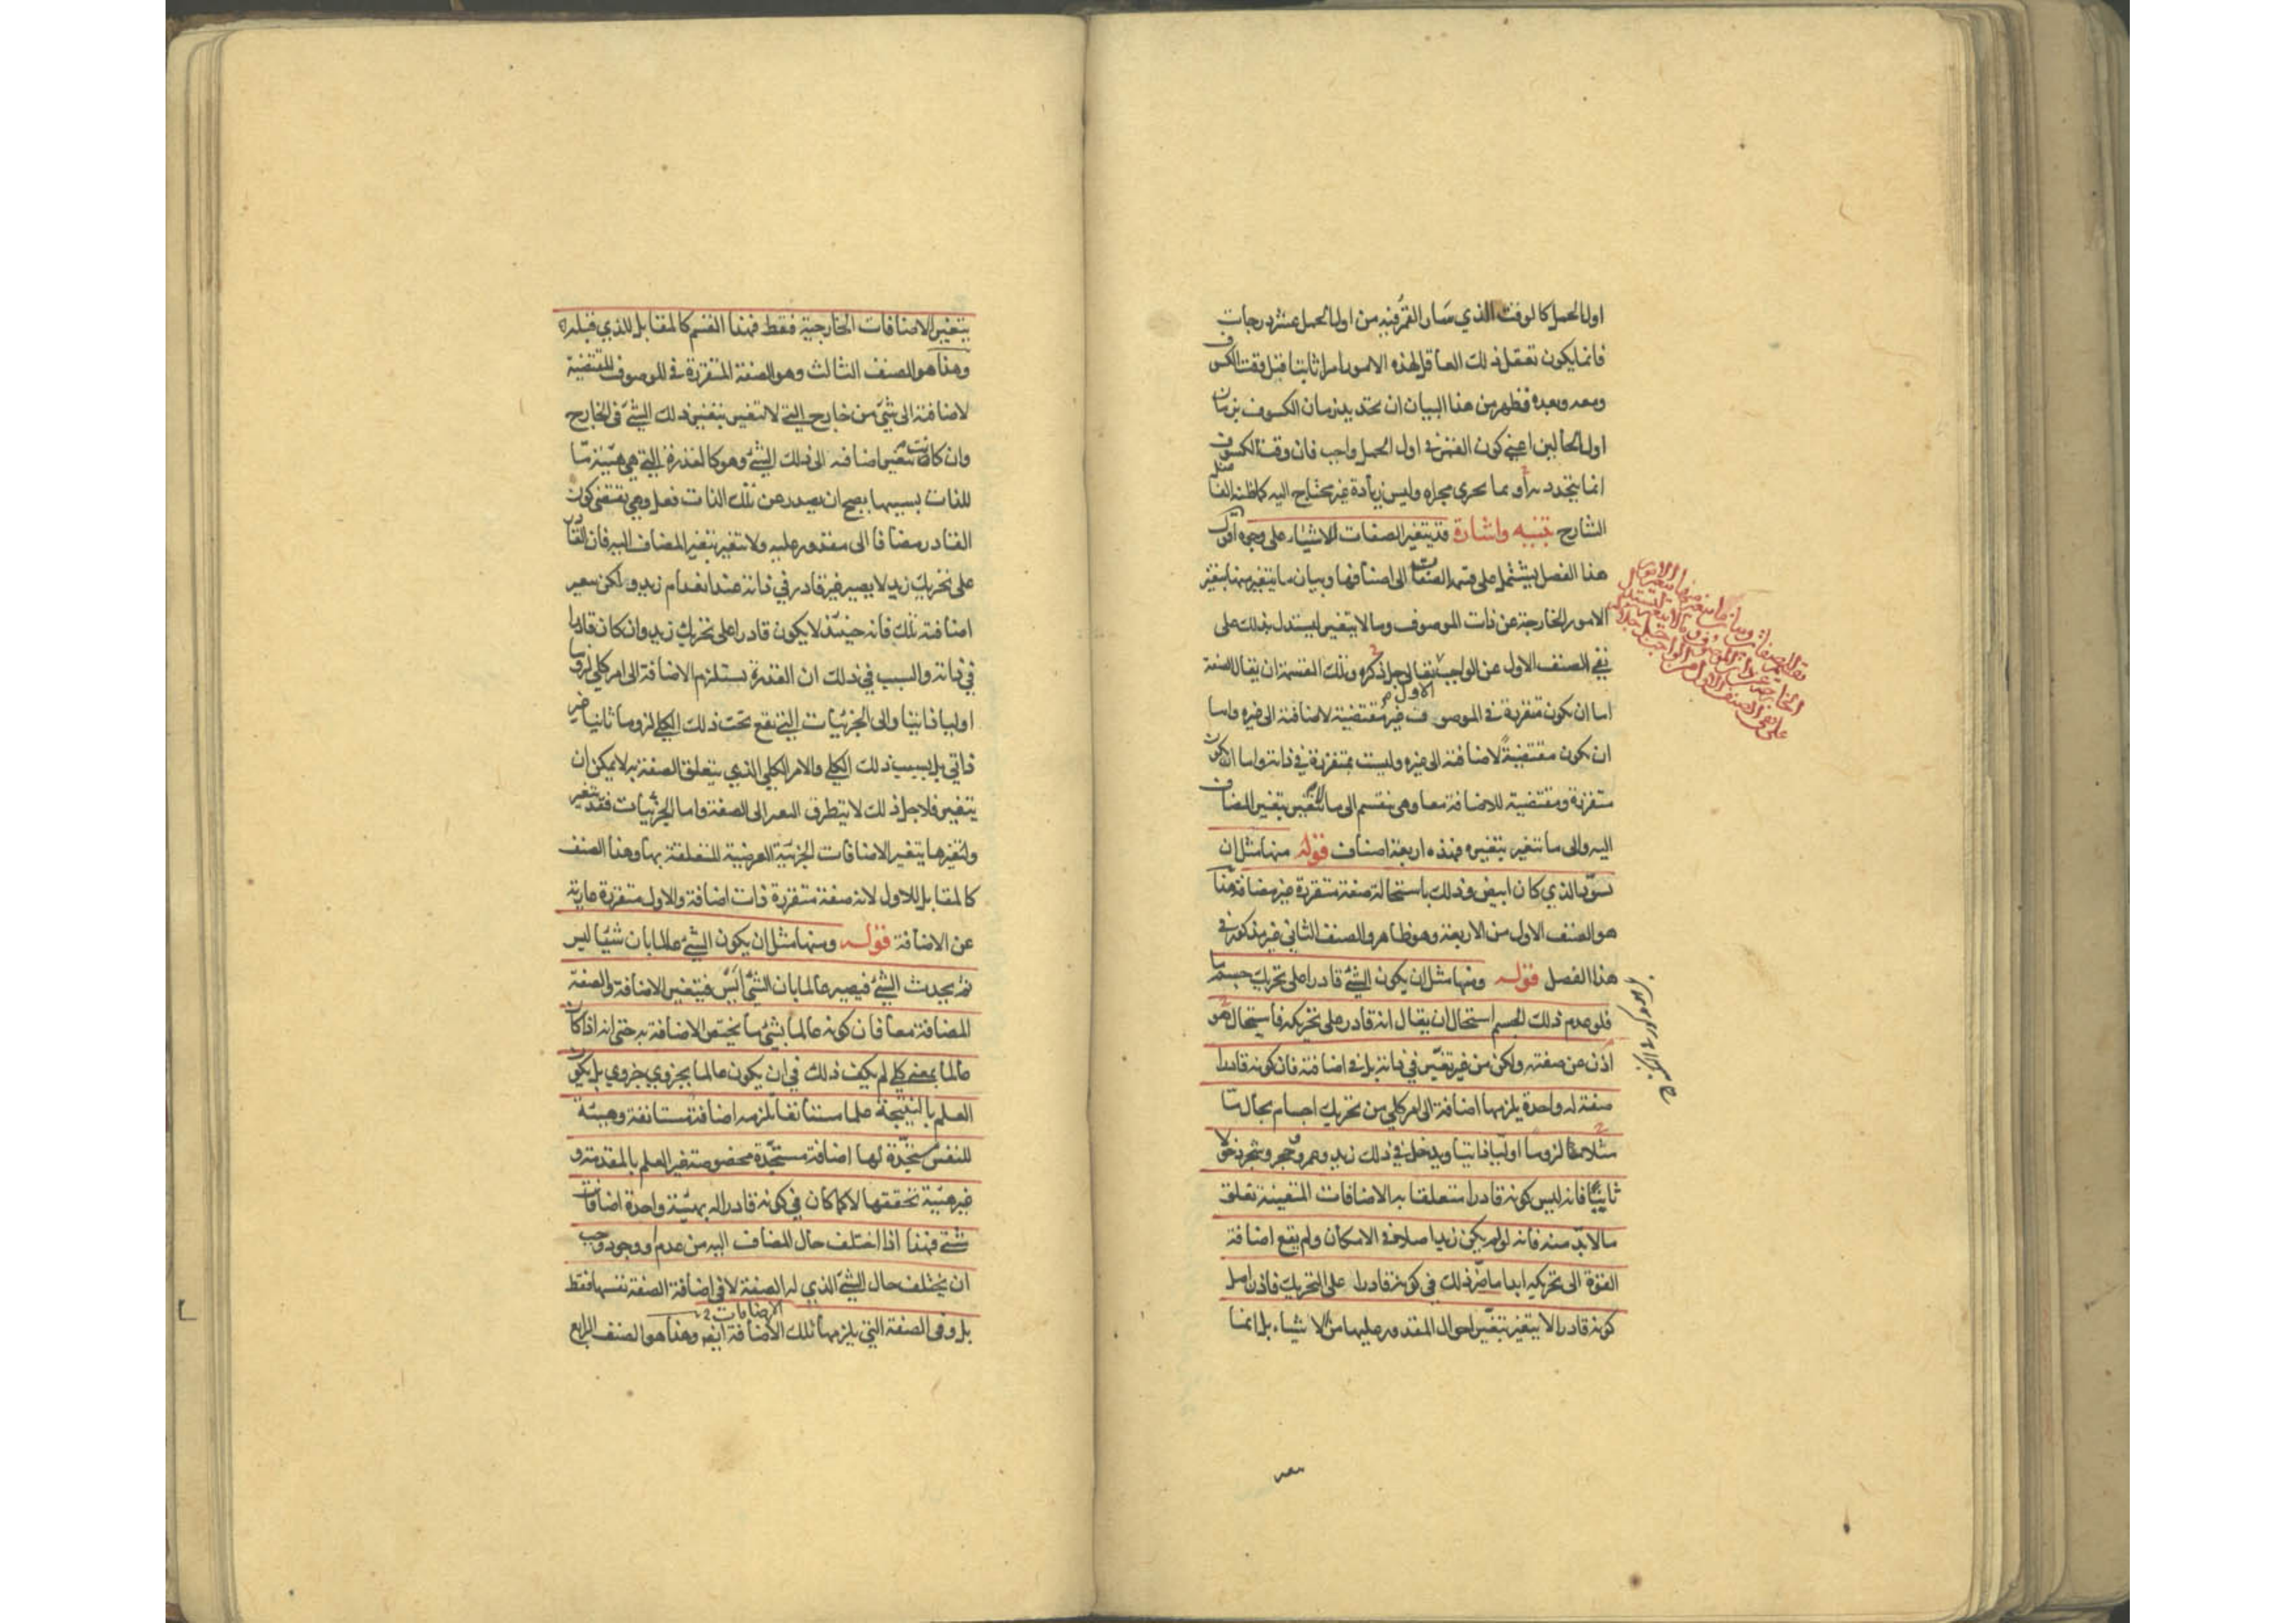 اول الحمل كالوقت الذي سار القمر فيه من اول الحمل عشر درجات
فانما يكون تعقل ذلك العاقل لهذه الامور امرا ثابتا قبل وقت الكسوف
ومعه وبعده فظهر من هذا البيان ان تحديد زمان الكسوف بزمان
اول الحالين اعني كون القمر في اول الحمل واجب فان وقت الكسوف
انما يتحدد به او بما يجري مجراه وليس زيادة غير محتاج اليه كما ظنه الفاضل
الشارح تنبيه واشارة قد يتغير الصفات للاشياء على وجوه اقول
هذا الفصل يشتمل على قسمة الصفات الى اصنافها وبيان ما يتغير منها بتغير
الامور الخارجة عن ذات الموصوف وما لا يتغير ليستدل بذلك على
نفي الصنف الاول عن الواجب تعالى جل ذكره وتلك القسمة ان يقال الصفة
اما ان يكون متقررة في الموصوف غير مقتضية لاضافته الى غيره واما
ان يكون مقتضية لاضافته الى غيره وليست بمتقررة في ذاته واما ان يكون
متقررة ومقتضية للاضافة معا وهي ينقسم الى ما لا يتغير بتغير المضاف
اليه والى ما تتغير بتغيره فهذه اربعة اصناف قوله منها مثل ان
يسود الذي كان ابيض وذلك باستحالة صفة متقررة غير مضافة هذا
هو الصنف الاول من الاربعة وهو ظاهر والصنف الثاني غير مذكور في
هذا الفصل قوله ومنها مثل ان يكون الشئ قادرا على تحريك جسم ما
فلو عدم ذلك الجسم استحال ان يقال انه قادر على تحريكه فاستحال هو
اذن عن صفته ولكن من غير تغير في ذاته بل في اضافته فان كونه قادرا
صفة له واحدة يلزمها اضافة الى امر كلي من تحريك اجسام بحال ما
مثلا لزوما اوليا ذاتيا ويدخل في ذلك زيد وعمرو وحجر وشجر دخولا
ثانيا فانه ليس كونه قادرا متعلقا به الاضافات المتعينة تعلق
ما لا بد منه فانه لو لم يكن زيد اصلا في الامكان ولم يقع اضافة
القوة الى تحريكه ابدا ما ضر ذلك في كونه قادرا على التحريك فاذن اصل
كونه قادرا لا يتغير بتغير احوال المقدور عليها من الاشياء بل انما
يتغير الاضافات الخارجية فقط فهذا القسم كالمقابل للذي قبله
وهذا هو الصنف الثالث وهو الصفة المتقررة في الموصوف المقتضية
لاضافته الى شئ من خارج التي لا تتغير بتغير ذلك الشئ في الخارج
وان كانت تتغير اضافته الى ذلك الشئ وهو كالقدرة التي هي هيئة ما
للذات بسببها يصح ان يصدر عن تلك الذات فعل وهي تقتضي كون
القادر مضافا الى مقدور عليه ولا تتغير بتغير المضاف اليه فان القادر
على تحريك زيد لا يصير غير قادر في ذاته عند انعدام زيد ولكن تتغير
اضافته تلك فانه حينئذ لا يكون قادرا على تحريك زيد وان كان قادرا
في ذاته والسبب في ذلك ان القدرة يستلزم الاضافة الى امر كلي لزوما
اوليا ذاتيا والى الجزئيات التي تقع تحت ذلك الكلي لزوما ثانيا غير
ذاتي بل بسبب ذلك الكلي والامر الكلي الذي يتعلق الصفة به لا يمكن ان
يتغير فلاجل ذلك لا يتطرق التغير الى الصفة واما الجزئيات فقد تتغير
ولتغيرها يتغير الاضافات الجزئية العرضية المتعلقة بها وهذا الصنف
كالمقابل للاول لانه صفة متقررة ذات اضافة والاول متقررة عارية
عن الاضافة قوله ومنها مثل ان يكون الشئ عالما بان شيئا ليس
ثم يحدث الشئ فيصير عالما بان الشئ ايس فتتغير الاضافة والصفة
المضافة معا فان كونه عالما بشئ ما يختص الاضافة به حتى انه اذا كان
عالما بمعنى كلي لم يكف ذلك في ان يكون عالما بجزوي جزوي بل يكون
العلم بالنتيجة علما مستانفا يلزمه اضافة مستانفة وهيئة
للنفس مستجدة لها اضافة مستجدة مخصوصة غير العلم بالمقدمة و
غير هيئة تحققها لا كما كان في كونه قادرا له بهيئة واحدة اضافات
شتى فهذا اذا اختلف حال المضاف اليه من عدم او وجود وجب
ان يختلف حال الشئ الذي له الصفة لا في اضافة الصفة نفسها فقط
بل وفي الصفة التي يلزمها تلك الاضافة ايضا وهذا هو الصنف الرابع